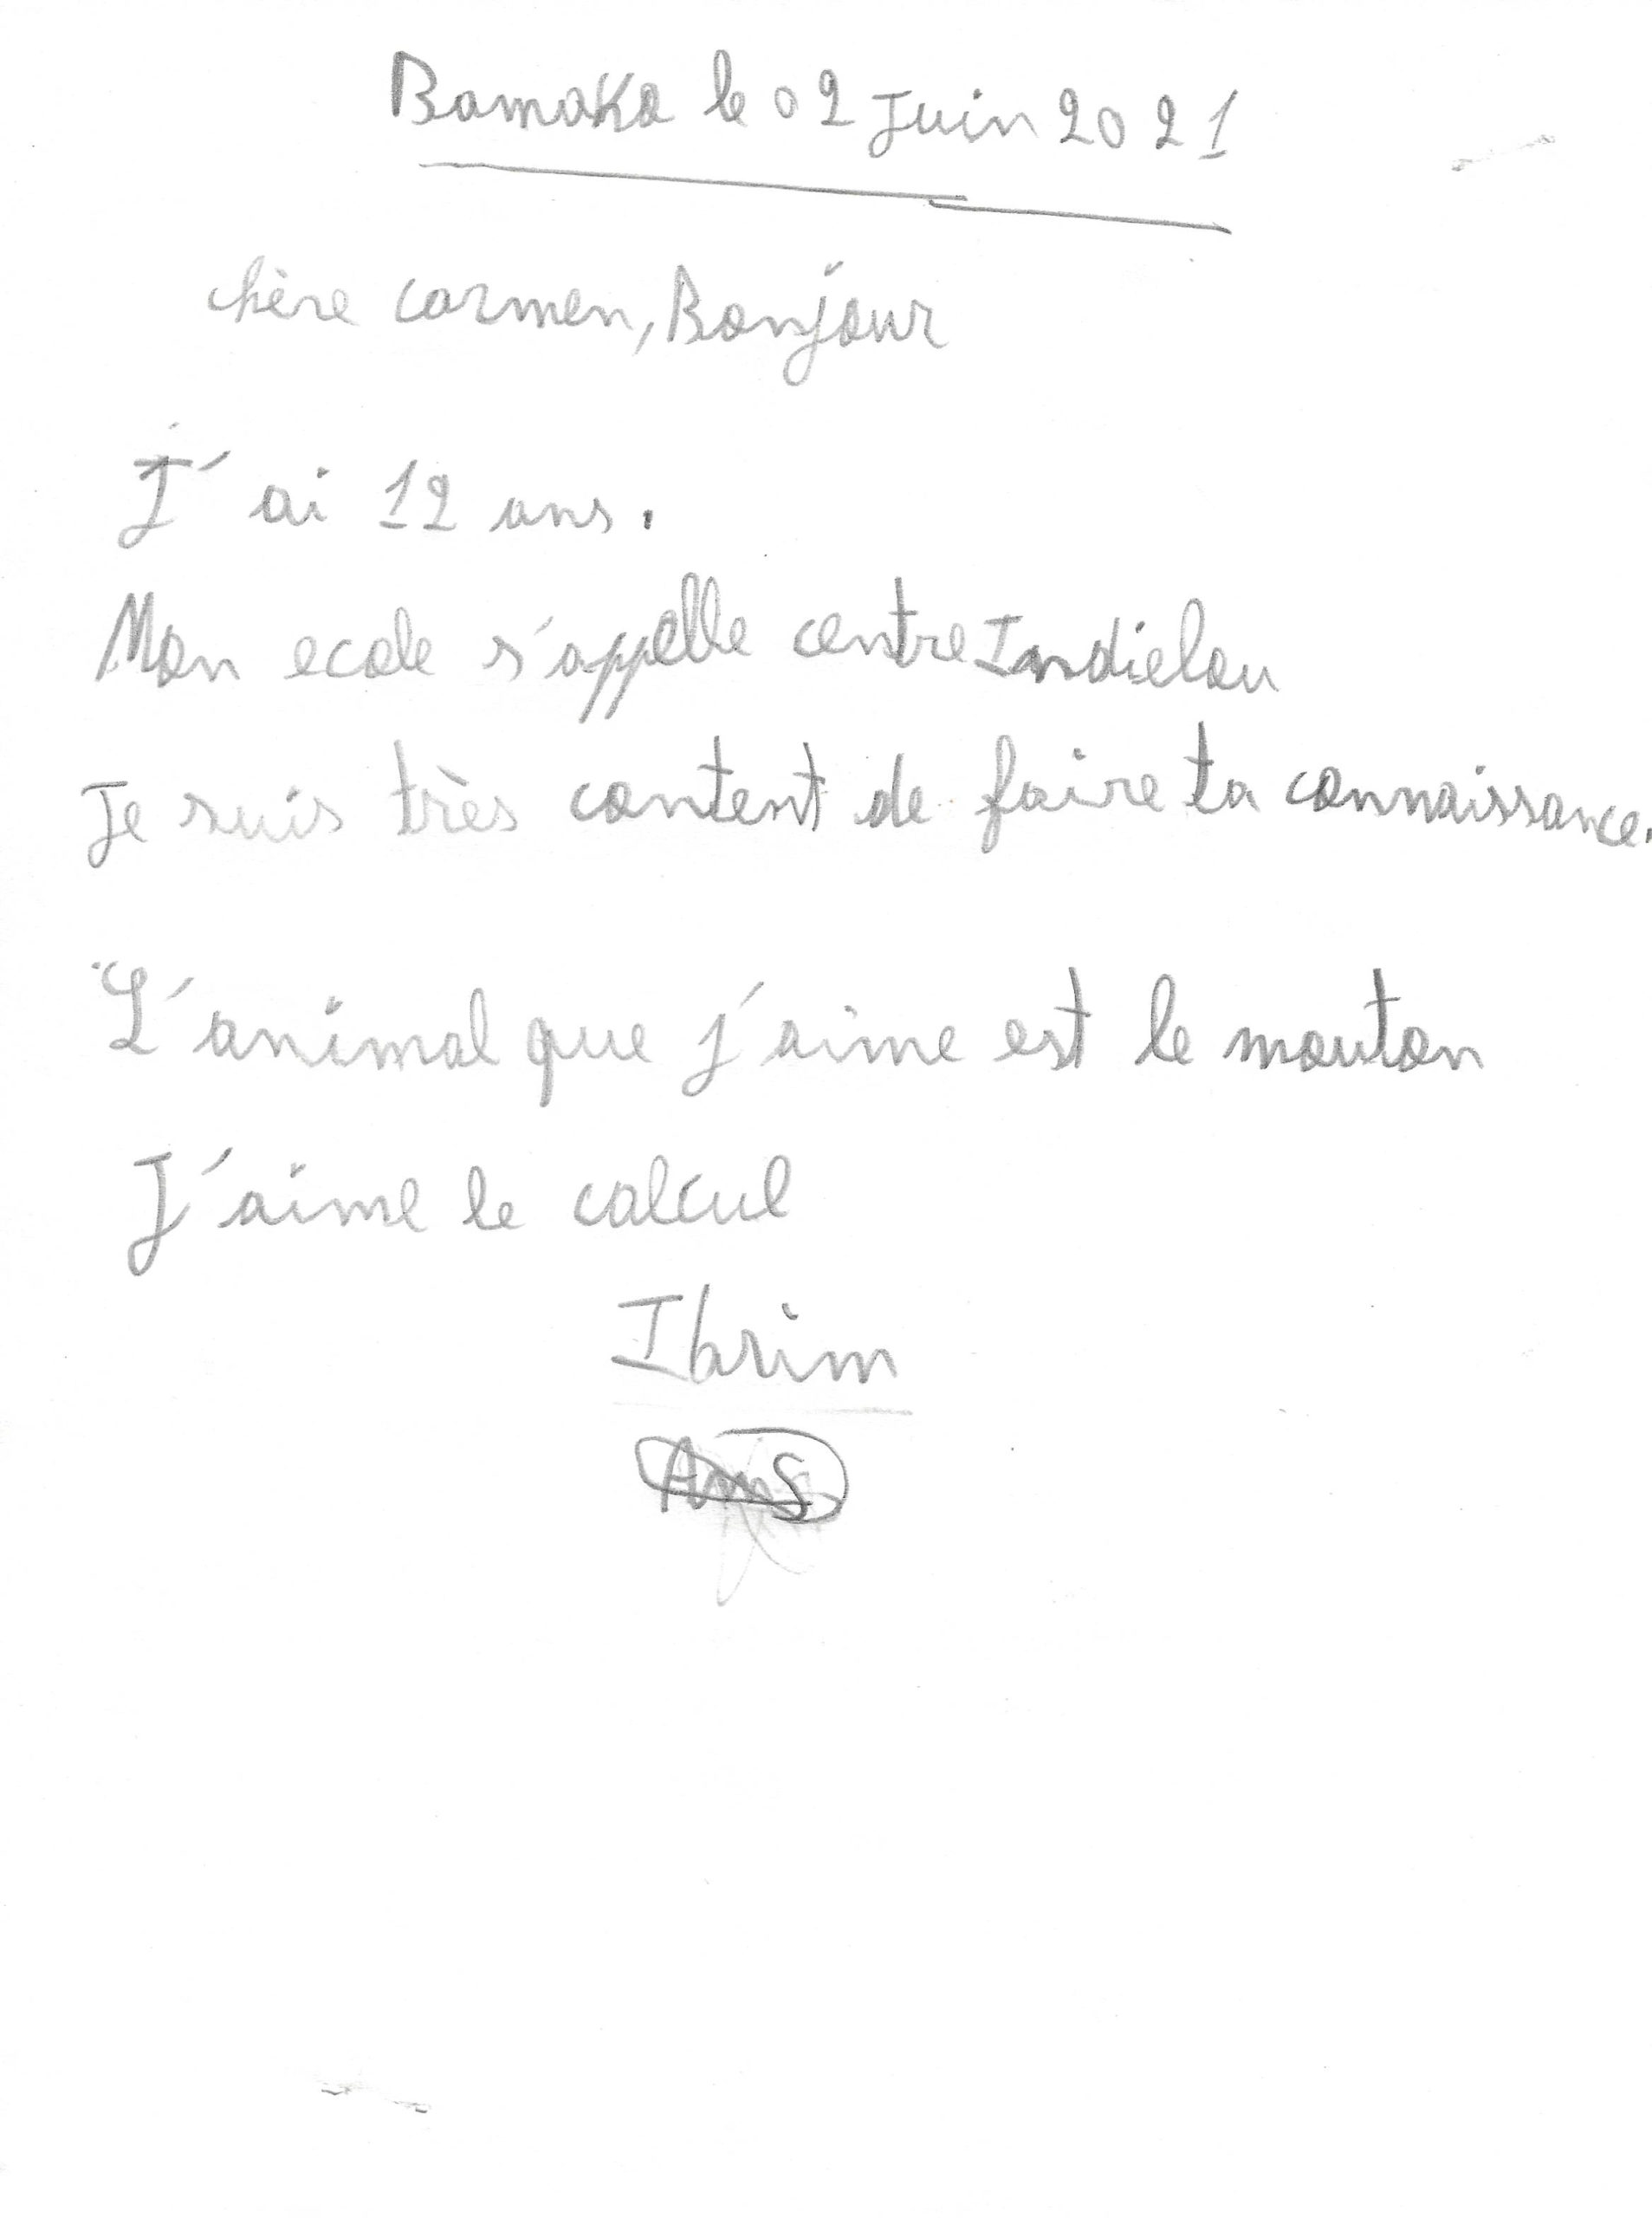 Bamako le 02 Juin 2021
chère carmen, Bonjour
J'ai 12 ans.
Mon ecole s'appelle centre Indielou
Je suis très content de faire ta connaissance.
L'animal que j'aime est le mouton
J'aime le calcul
Ibrim